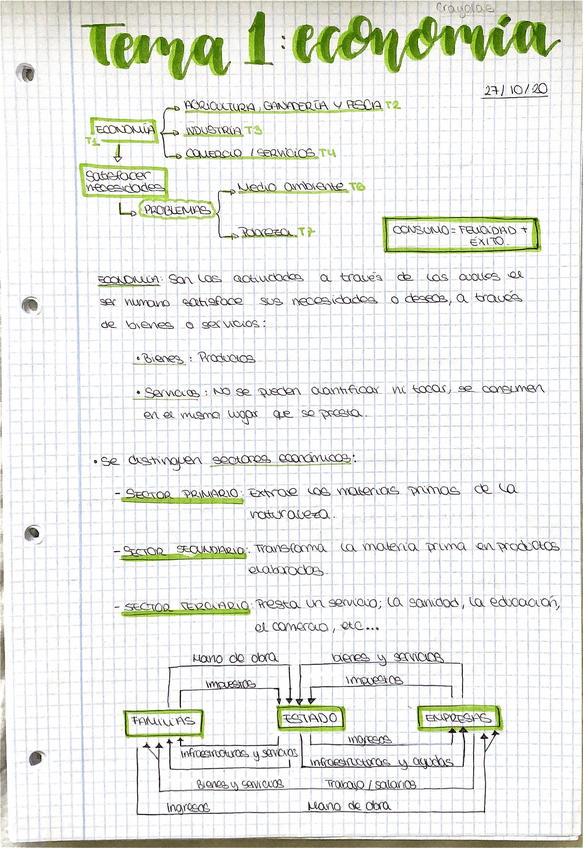 Crayolas
Tema 1: economía
27/10/20
AGRICULTURA, GANADERÍA Y PESCA T2
ECONOMÍA
T1
INDUSTRIA T3
COMERCIO / SERVICIOS T4
Satisfacer
necesidades
PROBLEMAS
Medio ambiente T6
Pobreza T7
CONSUMO = FELICIDAD +
ÉXITO.
ECONOMÍA: Son las actividades a través de las cuales el
ser humano satisface sus necesidades o deseos, a través
de bienes o servicios:
• Bienes: Productos
• Servicios: No se pueden cuantificar ni tocar, se consumen
en el mismo lugar que se presta.
• Se distinguen sectores económicos:
- SECTOR PRIMARIO: Extrae las materias primas de la
naturaleza.
- SECTOR SECUNDARIO: Transforma la materia prima en productos
elaborados
- SECTOR TERCIARIO: Presta un servicio; la sanidad, la educación,
el comercio, etc...
Mano de obra
bienes y servicios
impuestos
impuestos
FAMILIAS
ESTADO
EMPRESAS
ingresos
infraestructuras y servicios
infraestructuras y ayudas
Bienes y servicios
Trabajo / salarios
ingresos
Mano de obra